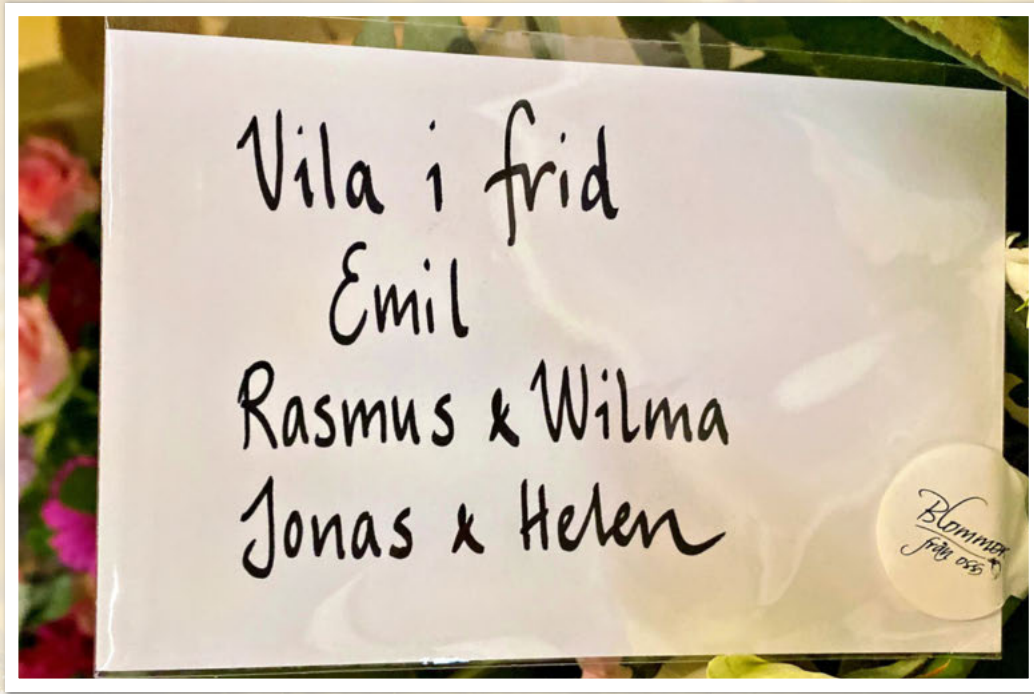 Vila i frid
Emil
Rasmus & Wilma
Jonas & Helen
Blommor
från oss